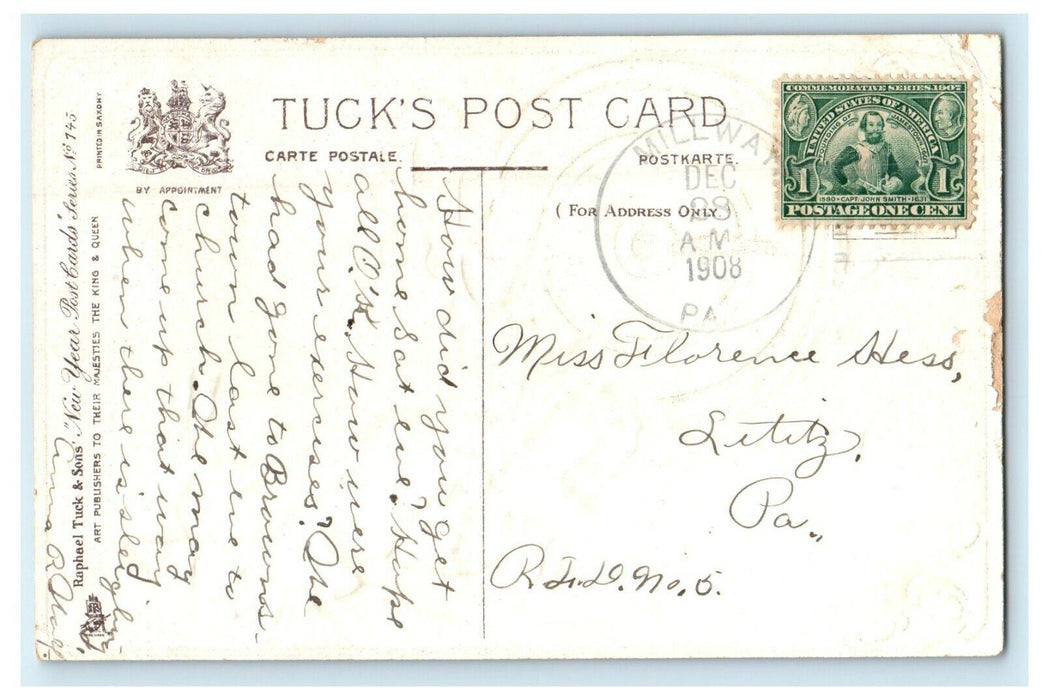 TUCK'S POST CARD
CARTE POSTALE.
POSTKARTE.
(FOR ADDRESS ONLY)
BY APPOINTMENT
PRINTED IN SAXONY
Raphael Tuck & Sons' "New Year Post Cards" Series. No 745
ART PUBLISHERS TO THEIR MAJESTIES THE KING & QUEEN
COMMEMORATIVE SERIES 1907
UNITED STATES OF AMERICA
FOUNDING OF JAMESTOWN 1607
1 1
1580 • CAPT. JOHN SMITH • 1631
POSTAGE ONE CENT
MILLWAY
DEC
28
A.M.
1908
PA.
How did you get
home Sat eve? Hope
all O.K. How were
your exercises? We
had gone to Browns-
town last eve to
church. We may
come up that way
when there is sleighing
Anna R
Miss Florence Hess,
Lititz,
Pa.,
R.F.D. No. 5.